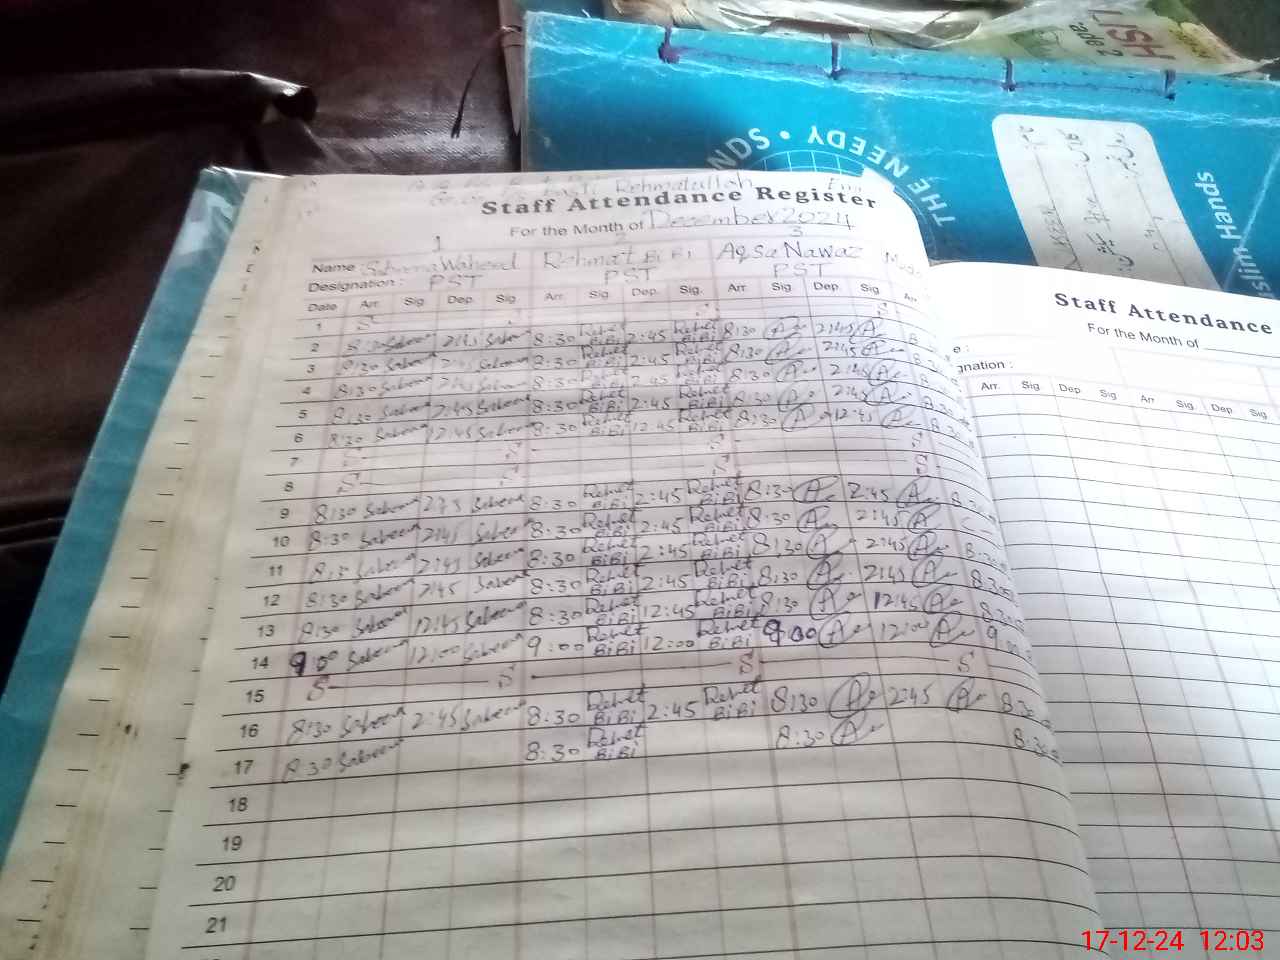 ade 2
THE NEEDY •
Muslim Hands
Basti Rehmatullah
Staff Attendance Register
For the Month of December 2024
1 2 3
Name : Sabeena Waheed Rehmat BiBi Aqsa Nawaz
Designation : PST PST PST
Date Arr. Sig. Dep. Sig. Arr. Sig. Dep. Sig. Arr. Sig. Dep. Sig. Arr.
1 S S S S
2 8:30 Sabeena 2:45 Sabeena 8:30 Rehmat BiBi 2:45 Rehmat BiBi 8:30 A 2:45 A
3 8:30 Sabeena 2:45 Sabeena 8:30 Rehmat BiBi 2:45 Rehmat BiBi 8:30 A 2:45 A 8:30
4 8:30 Sabeena 2:45 Sabeena 8:30 Rehmat BiBi 2:45 Rehmat BiBi 8:30 A 2:45 A 8:30
5 8:30 Sabeena 2:45 Sabeena 8:30 Rehmat BiBi 2:45 Rehmat BiBi 8:30 A 2:45 A 8:30
6 8:30 Sabeena 12:45 Sabeena 8:30 Rehmat BiBi 12:45 Rehmat BiBi 8:30 A 12:45 A 8:30
7 S S S S
8 S S S S
9 8:30 Sabeena 2:45 Sabeena 8:30 Rehmat BiBi 2:45 Rehmat BiBi 8:30 A 2:45 A 8:30
10 8:30 Sabeena 2:45 Sabeena 8:30 Rehmat BiBi 2:45 Rehmat BiBi 8:30 A 2:45 A C
11 8:30 Sabeena 2:45 Sabeena 8:30 Rehmat BiBi 2:45 Rehmat BiBi 8:30 A 2:45 A 8:30
12 8:30 Sabeena 2:45 Sabeena 8:30 Rehmat BiBi 2:45 Rehmat BiBi 8:30 A 2:45 A 8:30
13 8:30 Sabeena 12:45 Sabeena 8:30 Rehmat BiBi 12:45 Rehmat BiBi 8:30 A 12:45 A 8:30
14 9:00 Sabeena 12:00 Sabeena 9:00 Rehmat BiBi 12:00 Rehmat BiBi 9:00 A 12:00 A 9:00
15 S S S S
16 8:30 Sabeena 2:45 Sabeena 8:30 Rehmat BiBi 2:45 Rehmat BiBi 8:30 A 2:45 A 8:30
17 8:30 Sabeena 8:30 Rehmat BiBi 8:30 A 8:30
18
19
20
21
Staff Attendance
For the Month of
Designation :
Arr. Sig. Dep. Sig. Arr. Sig. Dep. Sig.
17-12-24 12:03